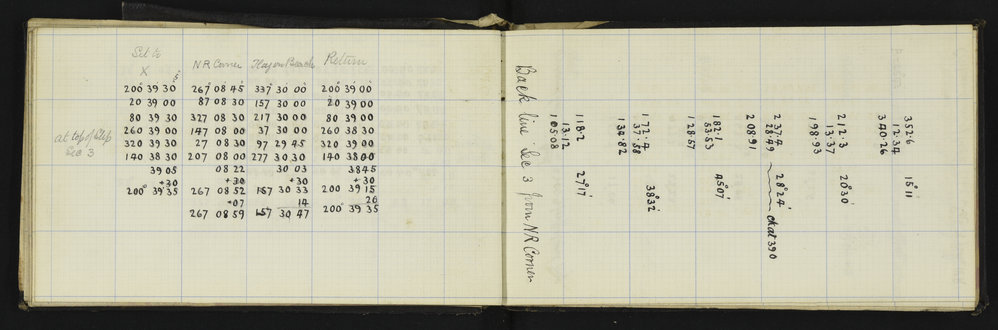 Set to
X NR Corner Flag on Beach Return
200° 39' 30" 267° 08' 45" 337 30 00 200° 39' 00"
20 39 00 87 08 30 157 30 00 20 39 00
80 39 30 327 08 30 217 30 00 80 39 00
260 39 00 147 08 00 37 30 00 260 38 30
at top of Slip
Sec 3
320 39 30 27 08 30 97 29 45 320 39 00
140 38 30 207 08 00 277 30 30 140 38 00
39 05 08 22 30 03 38 45
+30 +30 +30 +30
200° 39' 35 267 08 52 157 30 33 200 39 15
+07 14 20
267 08 59 157 30 47 200° 39' 35
Back line Sec 3 from NR Corner
118.2
13.12
105.08
27° 17'
172.4
37.58
134.82
38° 32'
182.1
53.53
128.57
45° 07'
237.4
28.49
208.91
28° 24' chat 390
212.3
13.37
198.93
20° 30'
352.6
12.34
340.26
15° 11'